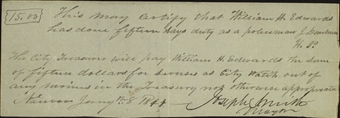 15.00
This may certify that William H. Edwards
has done fifteen days duty as a policeman
The City Treasurer will pay William H. Edwards the sum
of fifteen dollars for services as City Watch out of
any monies in the Treasury not otherwise appropriated
Nauvoo Jany 8 1844
Joseph Smith
Mayor